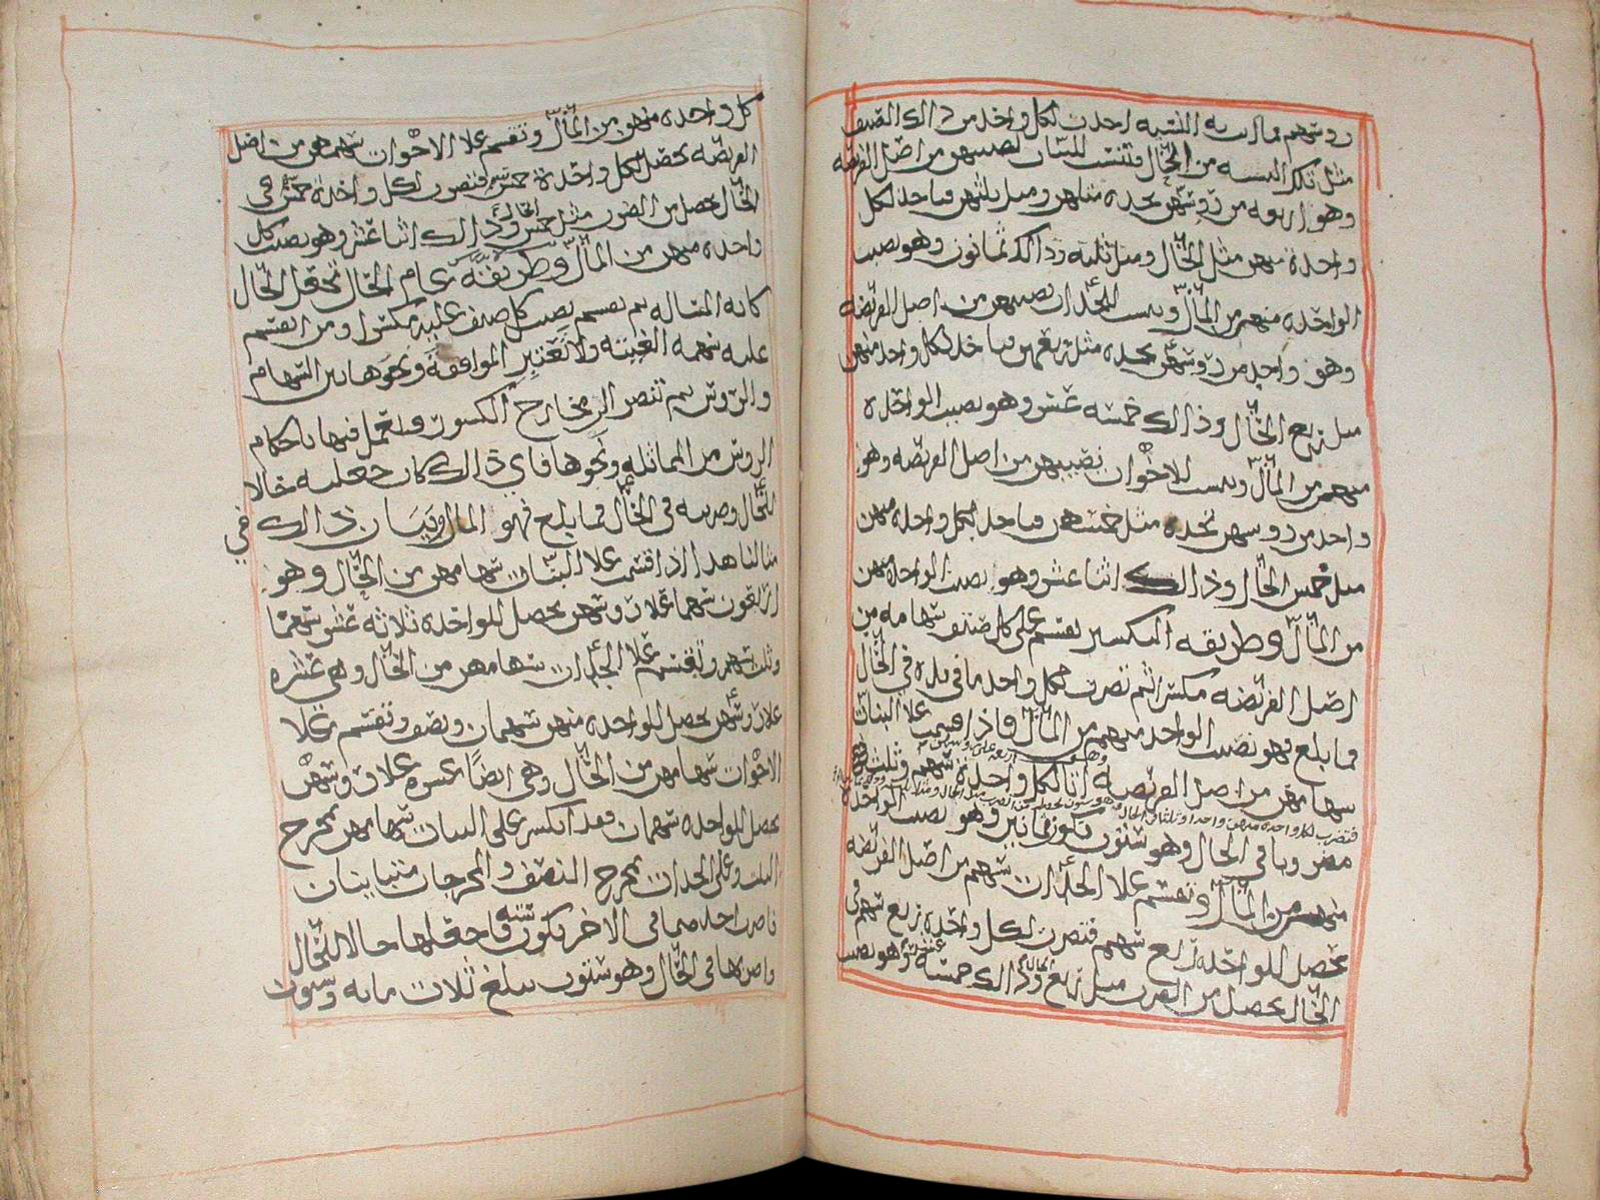 روسهم فما اىت به النسبه اخذت لكل واحد من ذالك الصنف
مثل تلك النسبه من الحال فتنسب للبنات نصيبهن من اصل الفريضه
وهو اربعه من روسهن تجده مثلهن ومثل ثلثهن فياخذ لكل
واحدة منهن مثل الحال ومثل ثلثه وذالك ثمانون وهو نصيب
الواحده منهم من المال وتنسب للجدات نصيبهن من اصل الفريضه
وهو واحد من روسهن تجده مثل ربعهن فياخذ لكل واحد منهن
مثل ربع الحال وذالك خمسه عشر وهو نصيب الواحده
منهمن من المال وتنسب للاخوات نصيبهن من اصل الفريضه وهو
واحد من روسهن تجده مثل خمسهن فياخذ لكل واحده منهن
مثل خمس الحال وذالك اثنا عشر وهو نصيب الواحده منهن
من المال وطريقه التكسير تقسم على كل صنف سهامه من
اصل الفريضه مكسرا ثم تضرب لكل واحد ما في يده في الحال
فما بلغ فهو نصيب الواحد منهم من المال فاذا قسمت علا البنات
وهي اربعه على
سهامهن من اصل الفريضه اتا لكل واحدة سهم وثلث
فتضرب لكل واحده منهن واحدا وثلثا في الحال
في الحال وهو ستون تكون ثمانين وهو نصيب الواحده
منهن من المال وتقسم علا الجدات سهمهن من اصل الفريضه
يحصل للواحدة ربع سهم فتضرب لكل واحده ربع سهم في
الحال يحصل من الضرب مثل ربع الحال وذالك خمسه عشر وهو نصيب
كل واحده منهن من المال وتقسم علا الاخوات سهمهن من اصل
الفريضه يحصل لكل واحدة خمس سهم فتضرب لكل واحده خمس في
الحال يحصل من الضرب مثل خمس الحال وذالك اثنا عشر وهو نصيب كل
واحده منهن من المال وطريقة عدم الحال تجعل الحال
كانه المساله ثم تقسم نصيب كل صنف عليه مكسرا ومن انقسم
عليه سهمه الغيته ولا تعتبر الموافقة ونحوها بين السهام
والروس ثم تنضر الى مخارج الكسور وتعمل فيها باحكام
الروس من المماثله ونحوها فاي ذالك كان جعلته حالا
للحال وضربته في الحال فما بلغ فهو المال وبيان ذالك في
مثالنا هذا اذا قسمت علا البنات سهامهن من الحال وهو
اربعون سهما علا روسهن يحصل للواحده ثلاثه عشر سهما
وثلث سهم وتقسم علا الجدات سهامهن من الحال وهي عشره
علا روسهن يحصل للواحده منهن سهمان ونصف وتقسم علا
الاخوات سهامهن من الحال وهي ايضا عشره علا روسهن
يحصل للواحده سهمان فقد انكسر على البنات سهامهن بمخرج
الثلث وعلى الجدات بمخرج النصف والمخرجان متباينان
فاضرب احدهما في الاخر تكون سته فاجعلها حالا للحال
واضربها في الحال وهو ستون يبلغ ثلاث مايه وستون